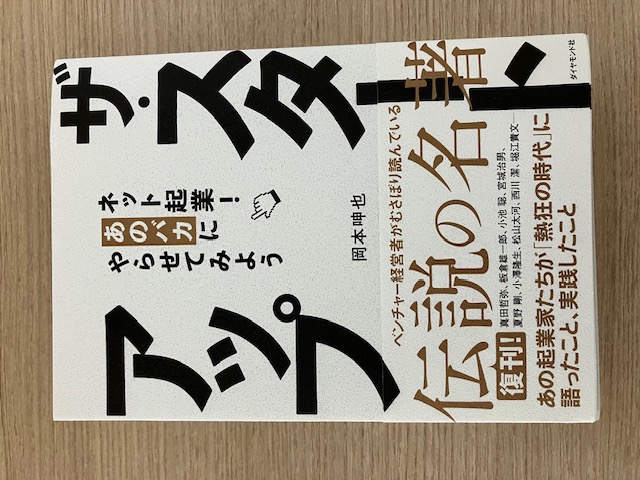 ザ・スタート
アップ
ネット起業!
あのバカに
やらせてみよう
岡本呻也
ベンチャー経営者がむさぼり読んでいる
伝説の名著
復刊!
真田哲弥、板倉雄一郎、小池聡、宮城治男、
夏野剛、小澤隆生、松山太河、西川潔、堀江貴文―
あの起業家たちが「熱狂の時代」に
語ったこと、実践したこと
ダイヤモンド社